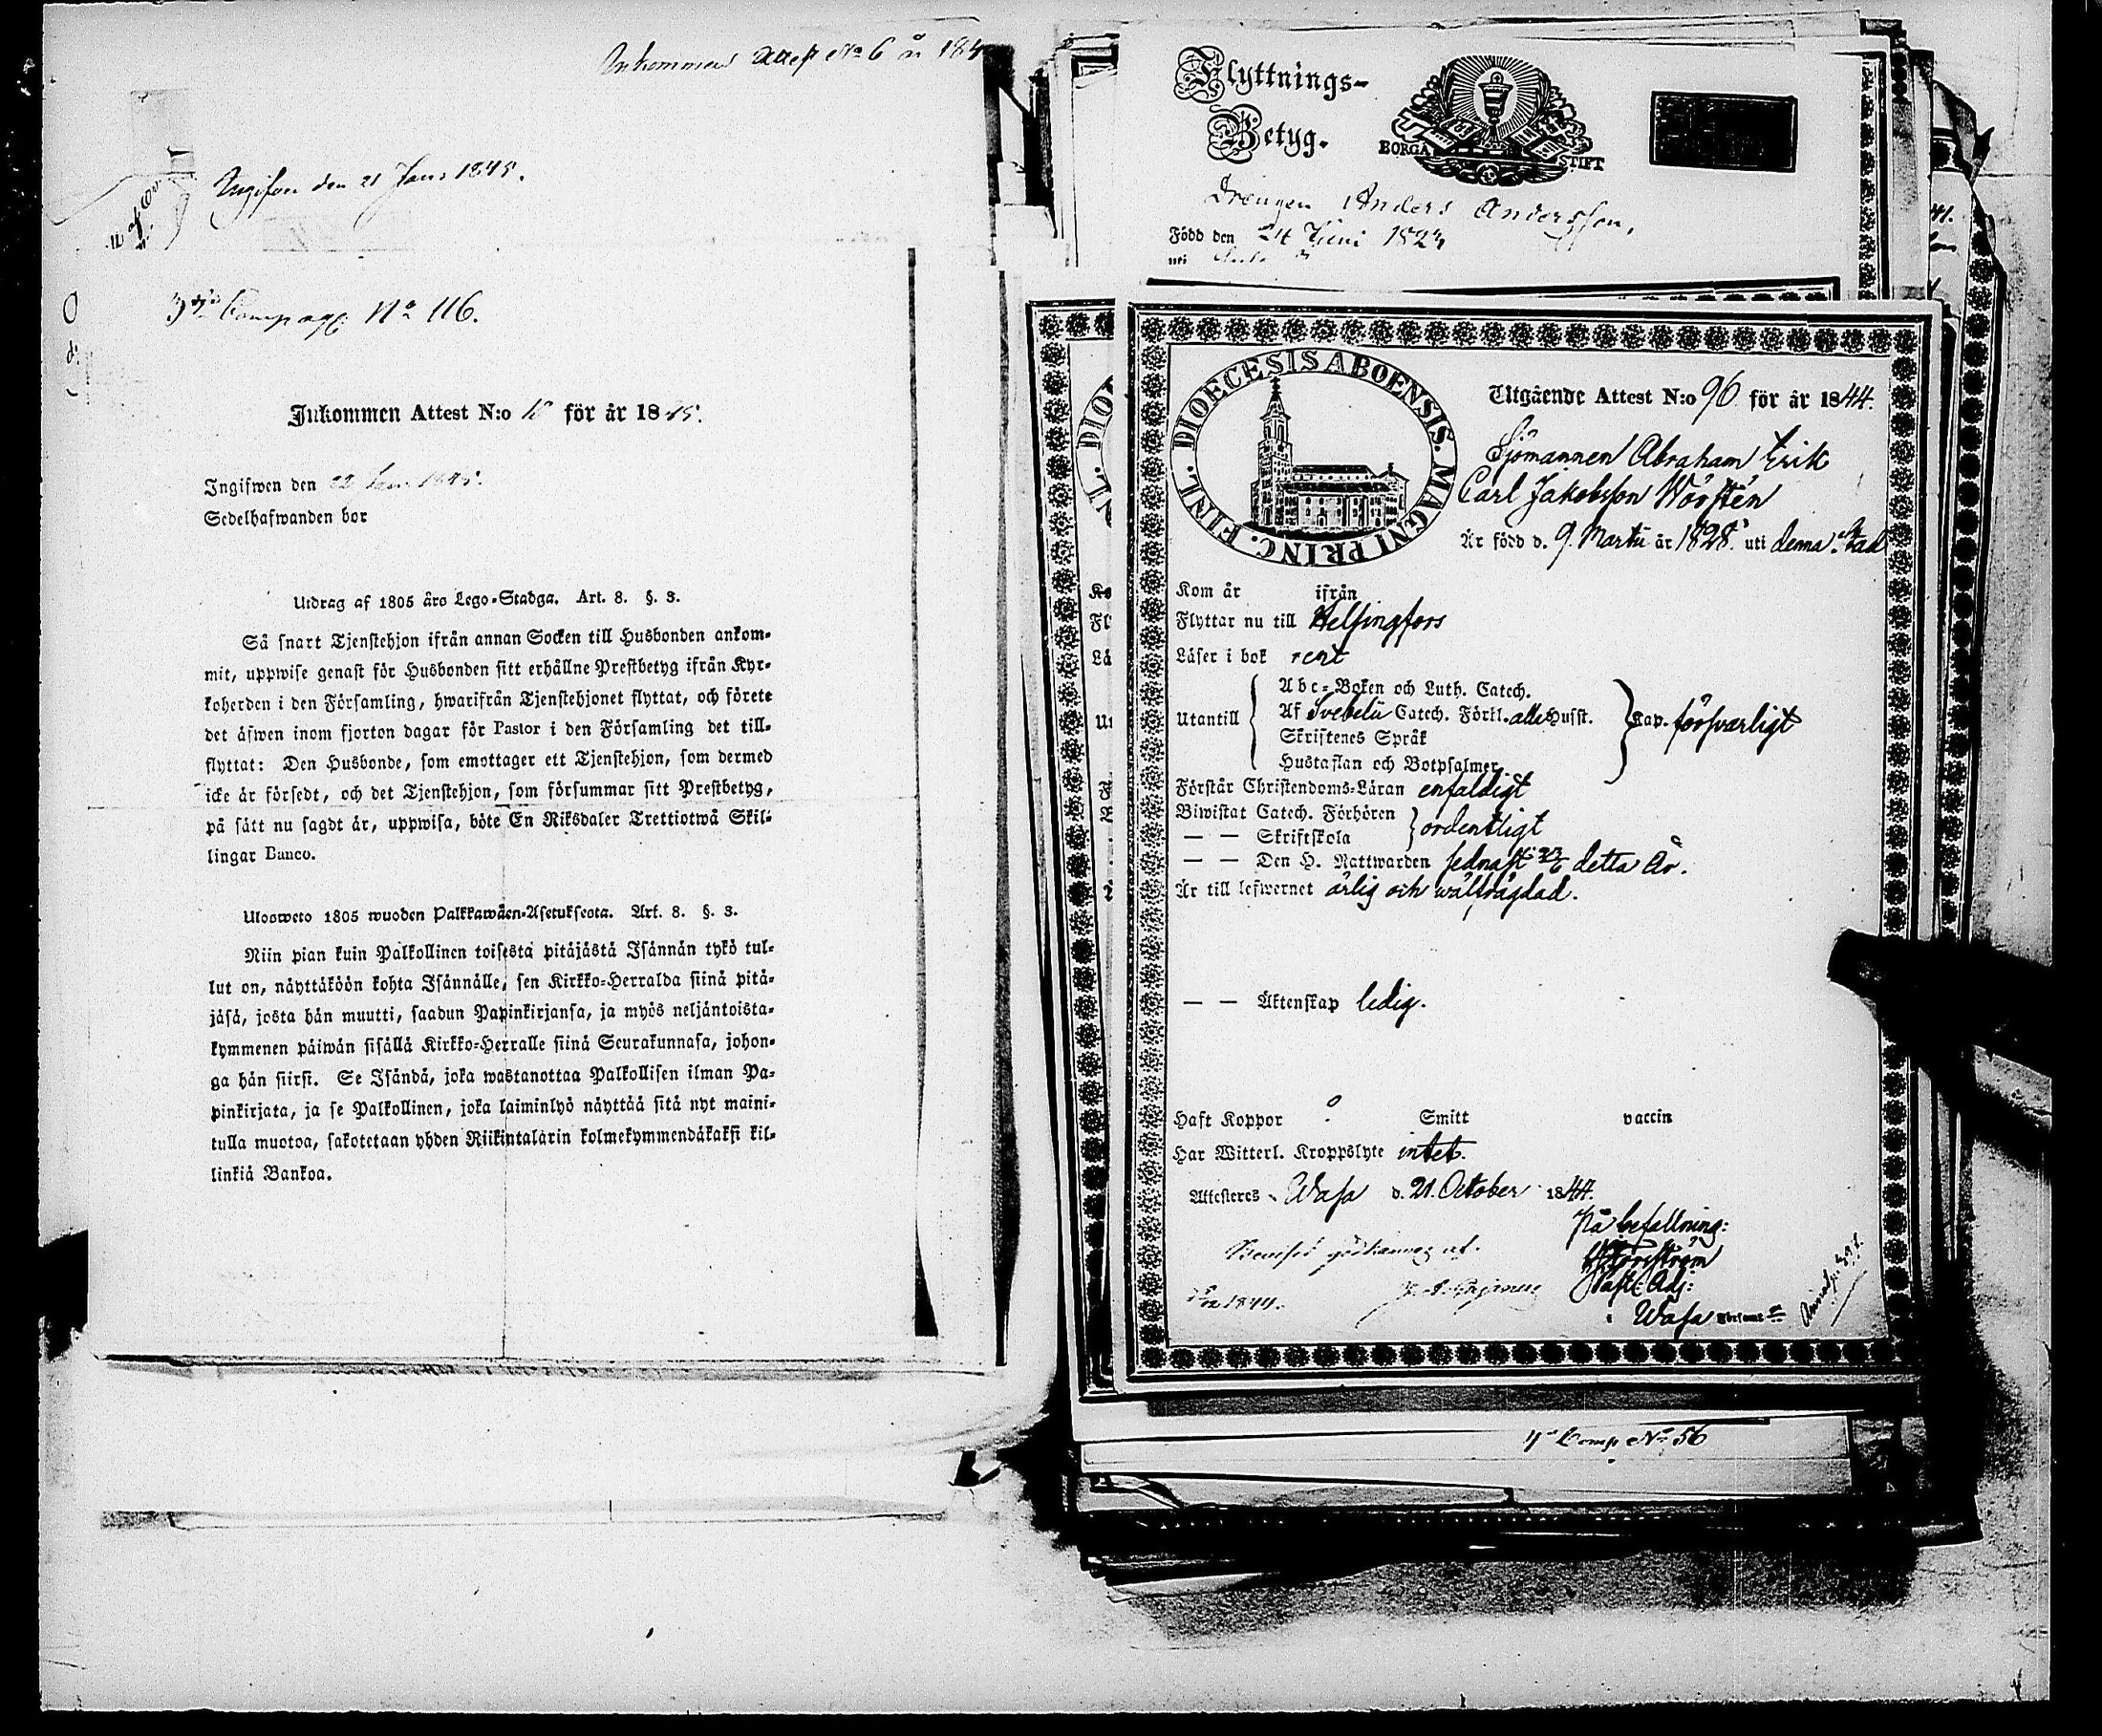 Inkommen Attest No 6 år 184
Ingifven den 21 Janr 1845.
3dje Compagn: No 116.
Inkommen Attest N:o för år 1845.
Ingifwen den 22 Jan. 1845.
Sedelhafwanden bor
Utdrag af 1805 års Lego-Stadga. Art. 8. §. 3.
Så snart Tjenstehjon ifrån annan Socken till Husbonden ankom-
mit, uppwise genast för Husbonden sitt erhållne Prestbetyg ifrån Kyr-
koherden i den Församling, hwarifrån Tjenstehjonet flyttat, och förete
det äfwen inom fjorton dagar för Pastor i den Församling det till-
flyttat: Den Husbonde, som emottager ett Tjenstehjon, som dermed
icke är försedt, och det Tjenstehjon, som försummar sitt Prestbetyg,
på sätt nu sagdt är, uppwisa, böte En Riksdaler Trettiotwå Skil-
lingar Banco.
Ulosweto 1805 wuoden Palkkawäen-Asetuksesta. Art. 8. §. 3.
Niin pian kuin Palkollinen toisesta pitäjästä Isännän tykö tul-
lut on, näyttäköön kohta Isännälle, sen Kirkko-Herralda siinä pitä-
jäsä, josta hän muutti, saadun Papinkirjansa, ja myös neljäntoista-
kymmenen päiwän sisällä Kirkko-Herralle siinä Seurakunnasa, johon-
ga hän siirsi. Se Isändä, joka wastanottaa Palkollisen ilman Pa-
pinkirjata, ja se Palkollinen, joka laiminlyö näyttää sitä nyt maini-
tulla muotoa, sakotetaan yhden Riikintalarin kolmekymmendäkaksi kil-
linkiä Bankoa.
Flyttnings-
Betyg.
BORGÅ STIFT
Drengen Anders Andersson,
Född den 24 Juni 1824
uti
DIOECESIS ABOENSIS. MAGNI PRINC. FINL.
Utgående Attest N:o 96 för år 1844.
Sjömannen Abraham Erik
Carl Jakobsson Wörstén
Är född d. 9. Martii år 1828. uti denna stad
Kom år ifrån
Flyttar nu till Helsingfors
Läser i bok rent
Abc-Boken och Luth. Catech.
Utantill Af Svebelii Catech. Förkl. alla Husst. Cap. försvarligt
Skriftenes Språk
Hustaflan och Botpsalmer
Förstår Christendoms-Läran enfaldigt
Biwistat Catech. Förhören ordentligt
— — Skriftskola
— — Den H. Nattwarden sednast detta År.
Är till lefwernet ärlig och wälfrägdad.
— — Äktenskap ledig.
Haft Koppor Smitt vaccin
Har Witterl. Kroppslyte intet.
Attesteres Wasa d. 21. October 1844.
På befallning:
Past: Adj:
i Wasa
4de Comp No 56